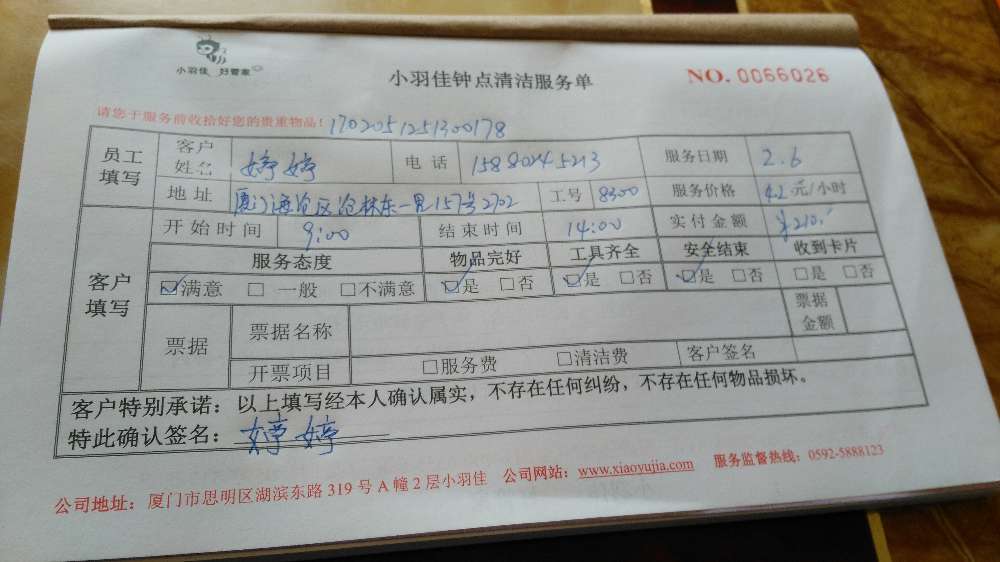 小羽佳 好管家
小羽佳钟点清洁服务单
NO. 0066026
请您于服务前收拾好您的贵重物品！ 1702051251300178
员工填写 客户姓名 婷婷 电话 15880245213 服务日期 2.6
地址 厦门海沧区沧林东一里157号2702 工号 8300 服务价格 42元/小时
客户填写 开始时间 9:00 结束时间 14:00 实付金额 ¥210.
服务态度 物品完好 工具齐全 安全结束 收到卡片
☑满意 □一般 □不满意 ☑是 □否 ☑是 □否 ☑是 □否 □是 □否
票据 票据名称 票据金额
开票项目 □服务费 □清洁费 客户签名
客户特别承诺：以上填写经本人确认属实，不存在任何纠纷，不存在任何物品损坏。
特此确认签名：婷婷
公司地址：厦门市思明区湖滨东路319号A幢2层小羽佳 公司网站：www.xiaoyujia.com 服务监督热线：0592-5888123